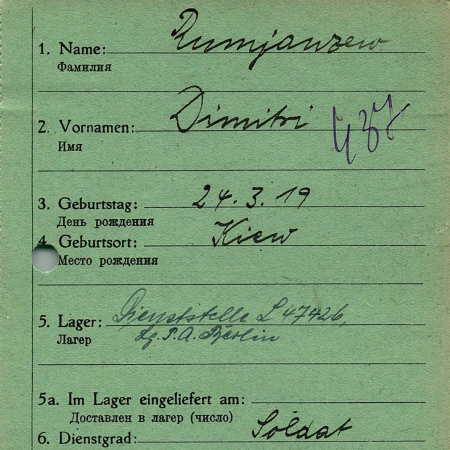 1. Name: Rumjanzew
Фамилия
2. Vornamen: Dimitri
Имя
437
3. Geburtstag: 24. 3. 19
День рождения
4. Geburtsort: Kiew
Место рождения
5. Lager: Dienststelle L 47426,
Лагер Lg. P. A. Berlin
5a. Im Lager eingeliefert am:
Доставлен в лагер (число)
6. Dienstgrad: Soldat